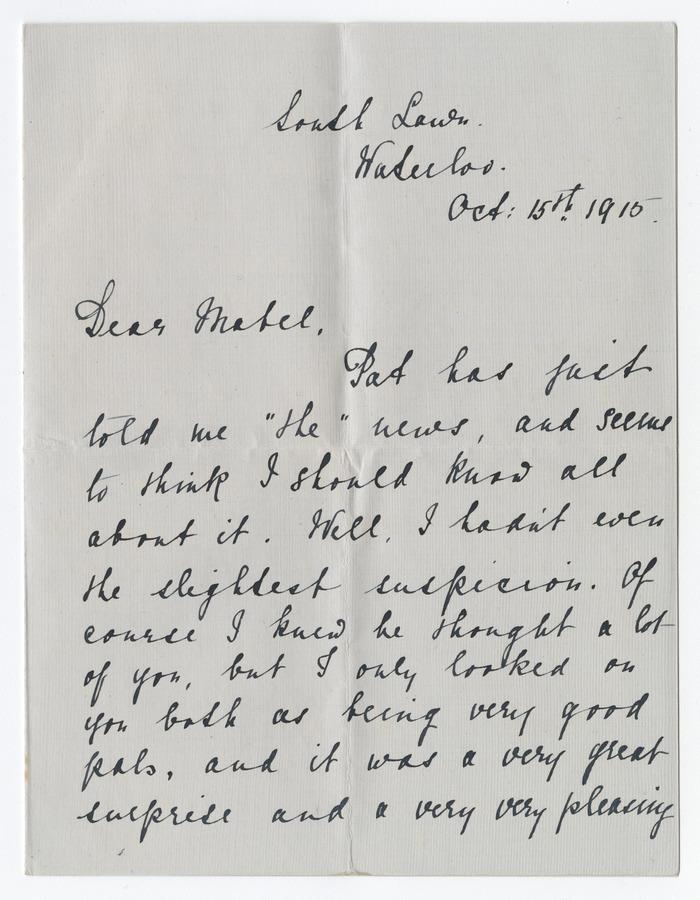 South Lawn.
Waterloo.
Oct: 15st. 1915.
Dear Mabel,
Pat has just
told me "the" news, and seems
to think I should know all
about it. Well, I hadn't even
the slightest suspicion. Of
course I knew he thought a lot
of you, but I only looked on
you both as being very good
pals, and it was a very great
surprise and a very very pleasing